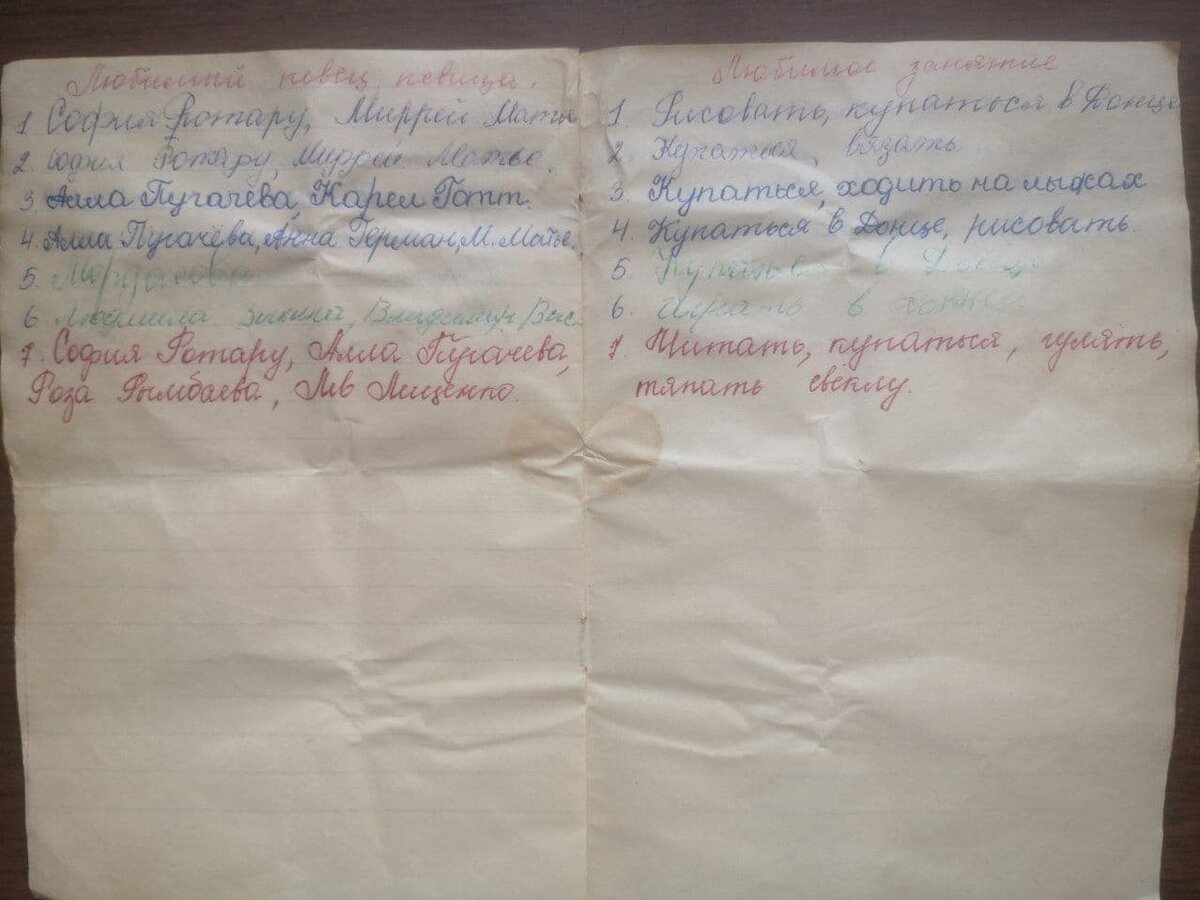 Любимый певец певица.
1 София Ротару, Миррей Матье
2. София Ротару, Миррей Матье.
3. Алла Пугачёва, Карел Готт.
4. Алла Пугачёва, Анна Герман, М. Матье.
5.
6 Людмила Зыкина, Владимир Выс
7. София Ротару, Алла Пугачева,
Роза Рымбаева, Лев Лещенко.
Любимое занятие
1. Рисовать, купаться в Донце
2. Купаться, вязать
3. Купаться, ходить на лыжах
4. Купаться в Донце, рисовать.
5 Купаться в Донце
6. Играть в хоккей
7. Читать, купаться, гулять,
тяпать свеклу.